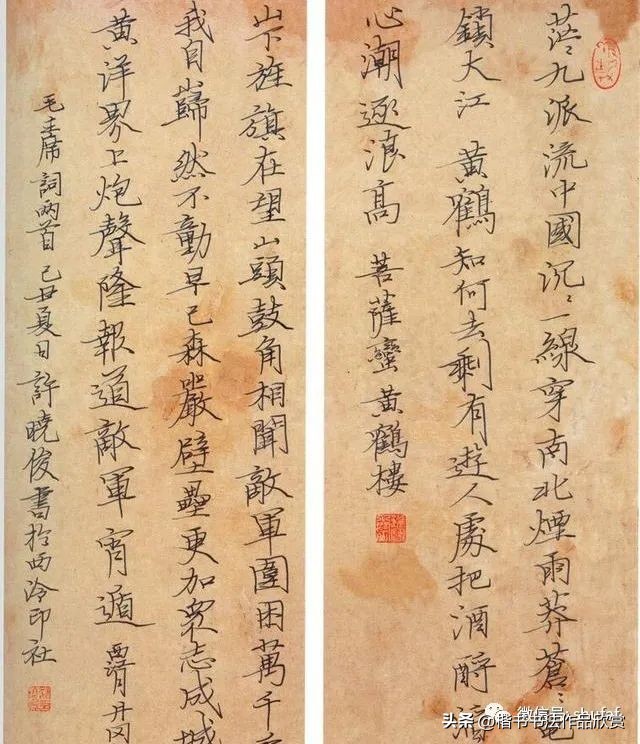 茫〻九派流中國沉〻一線穿南北煙雨莽蒼〻龜
鎖大江 黄鶴知何去剩有遊人處把酒酹滔
心潮逐浪高 菩薩蠻黄鶴樓
山下旌旗在望山頭鼓角相聞敵軍圍困萬千
我自巋然不動早已森嚴壁壘更加衆志成城
黄洋界上炮聲隆報道敵軍宵遁 西江月井冈
毛主席詞兩首 己丑夏日許曉俊書於西泠印社
微信号:
头条 @楷书书法作品欣赏